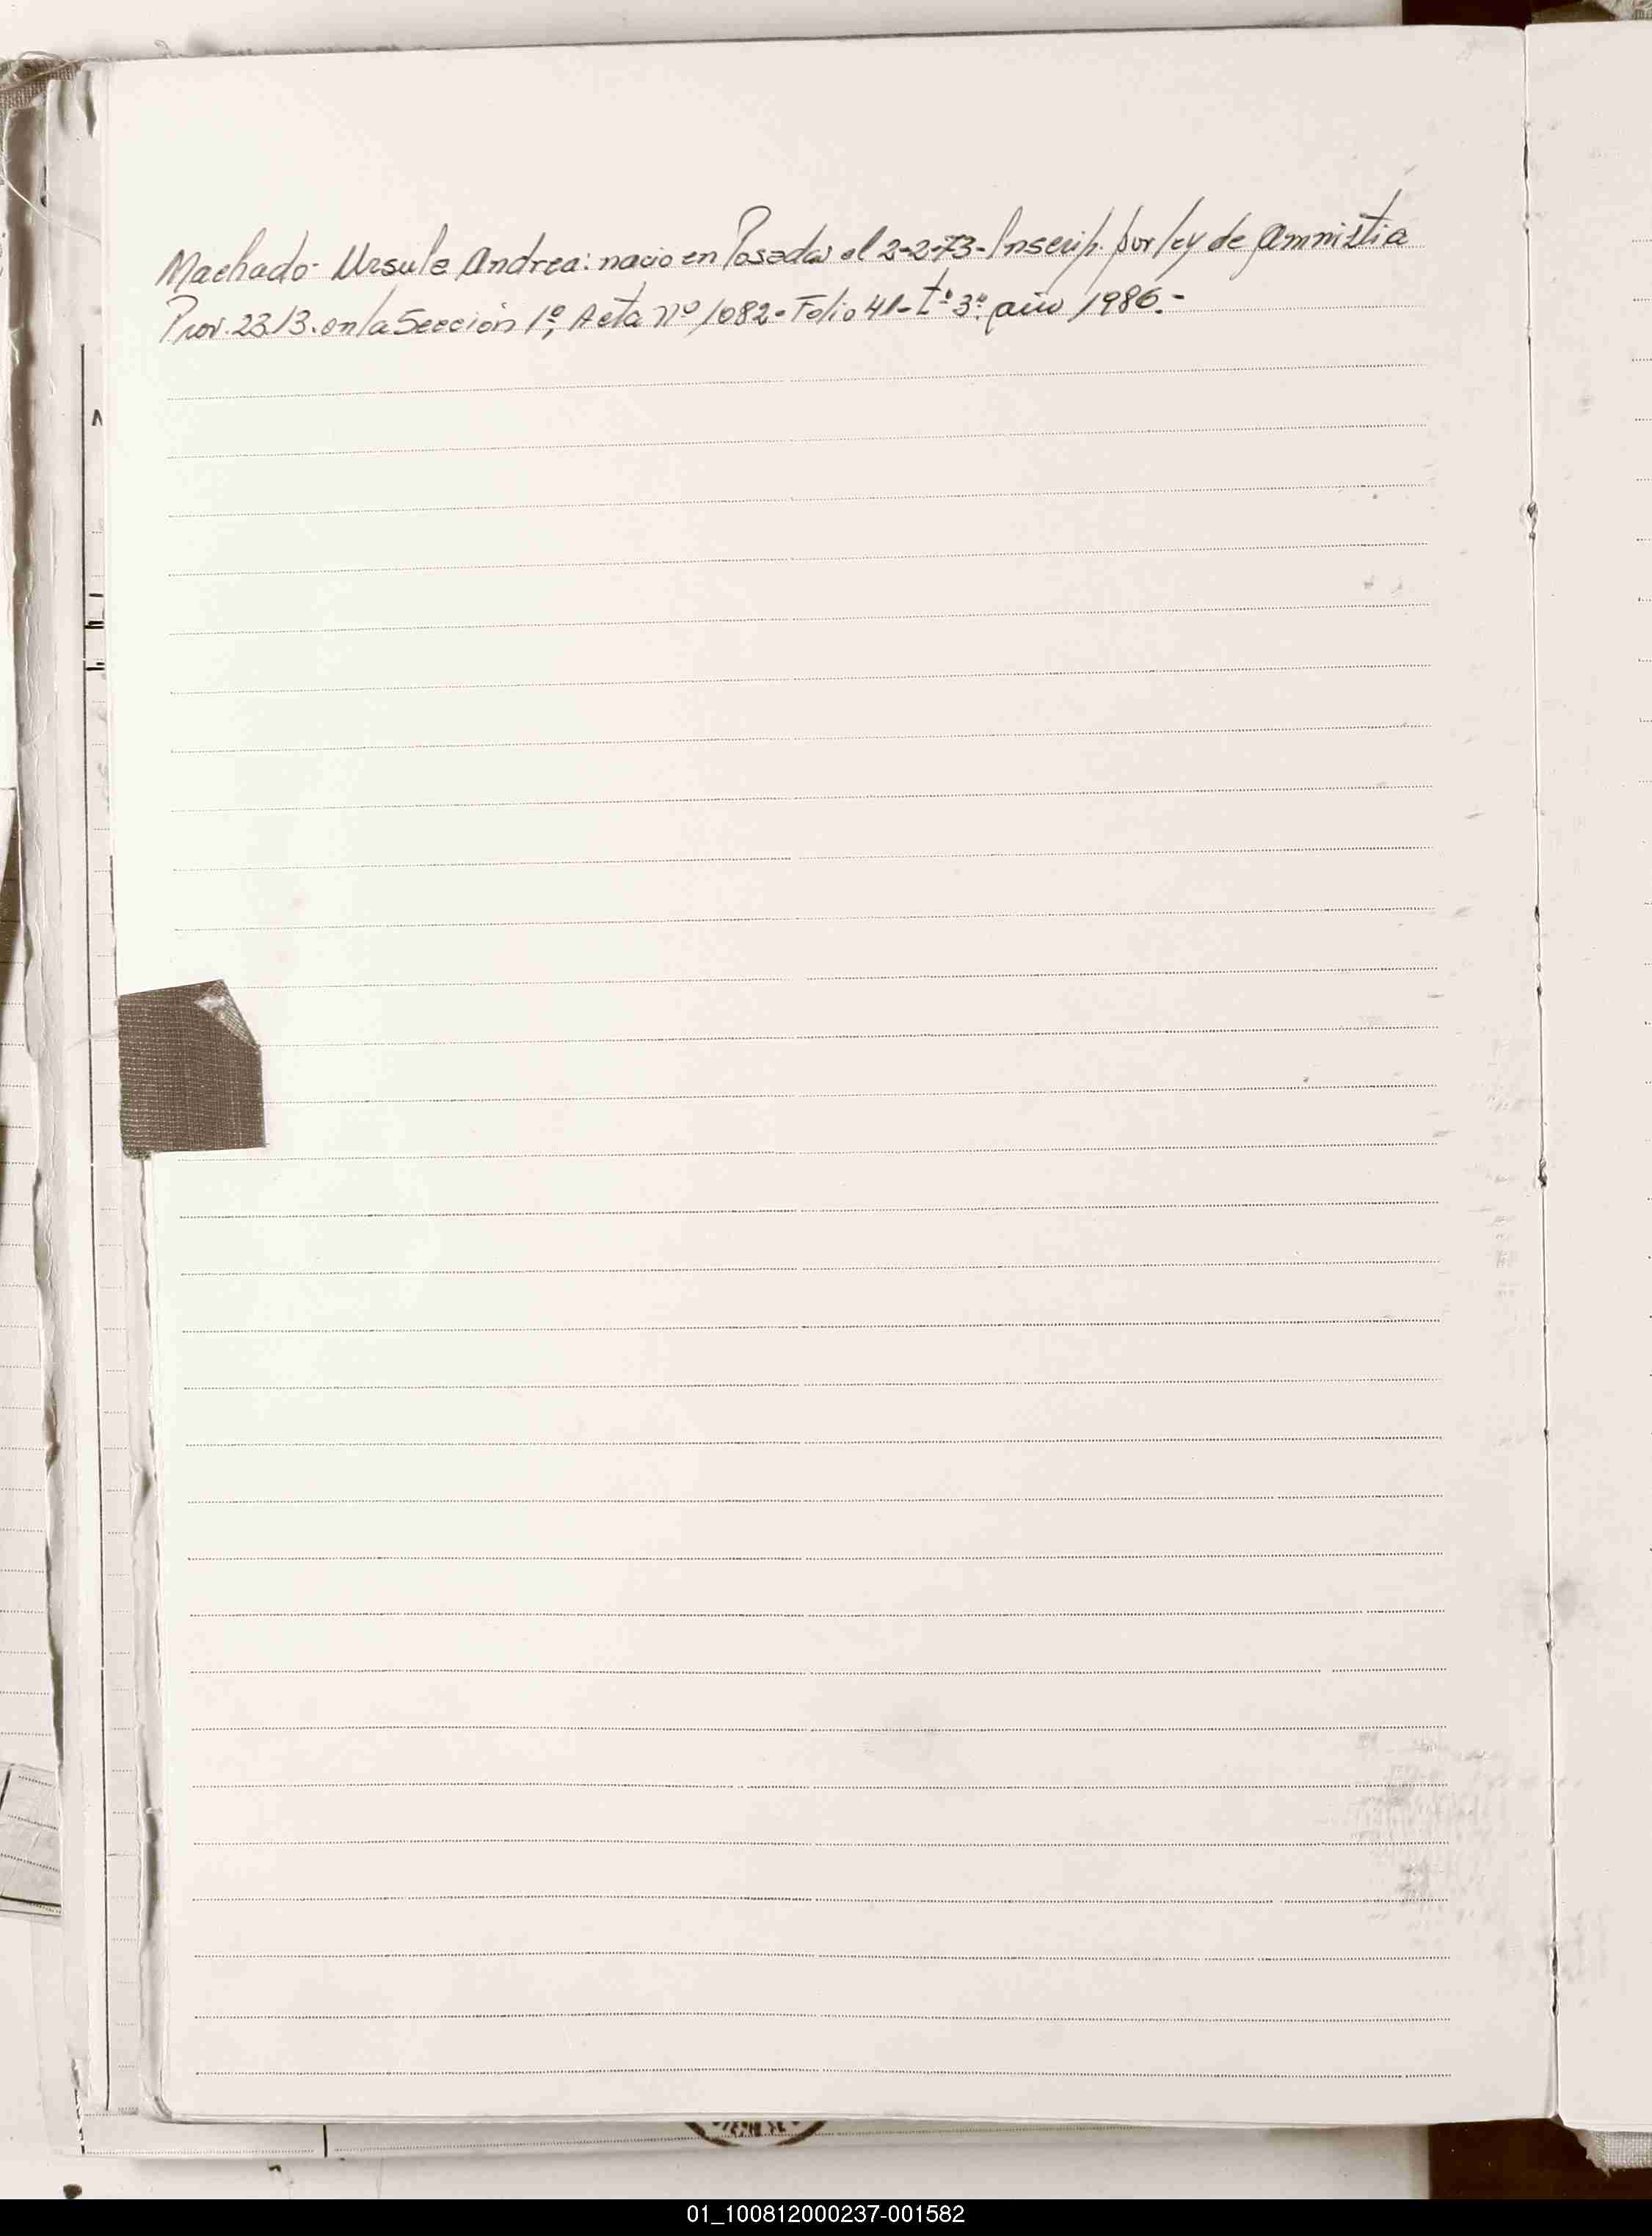 Machado - Ursula Andrea: nacio en Posadas el 2-2-73- Inscrip. por ley de amnistia
Prov. 2313. en la Sección 1º, Acta nº 1082- Folio 41- tº 3º. año 1986.-
01_100812000237-001582